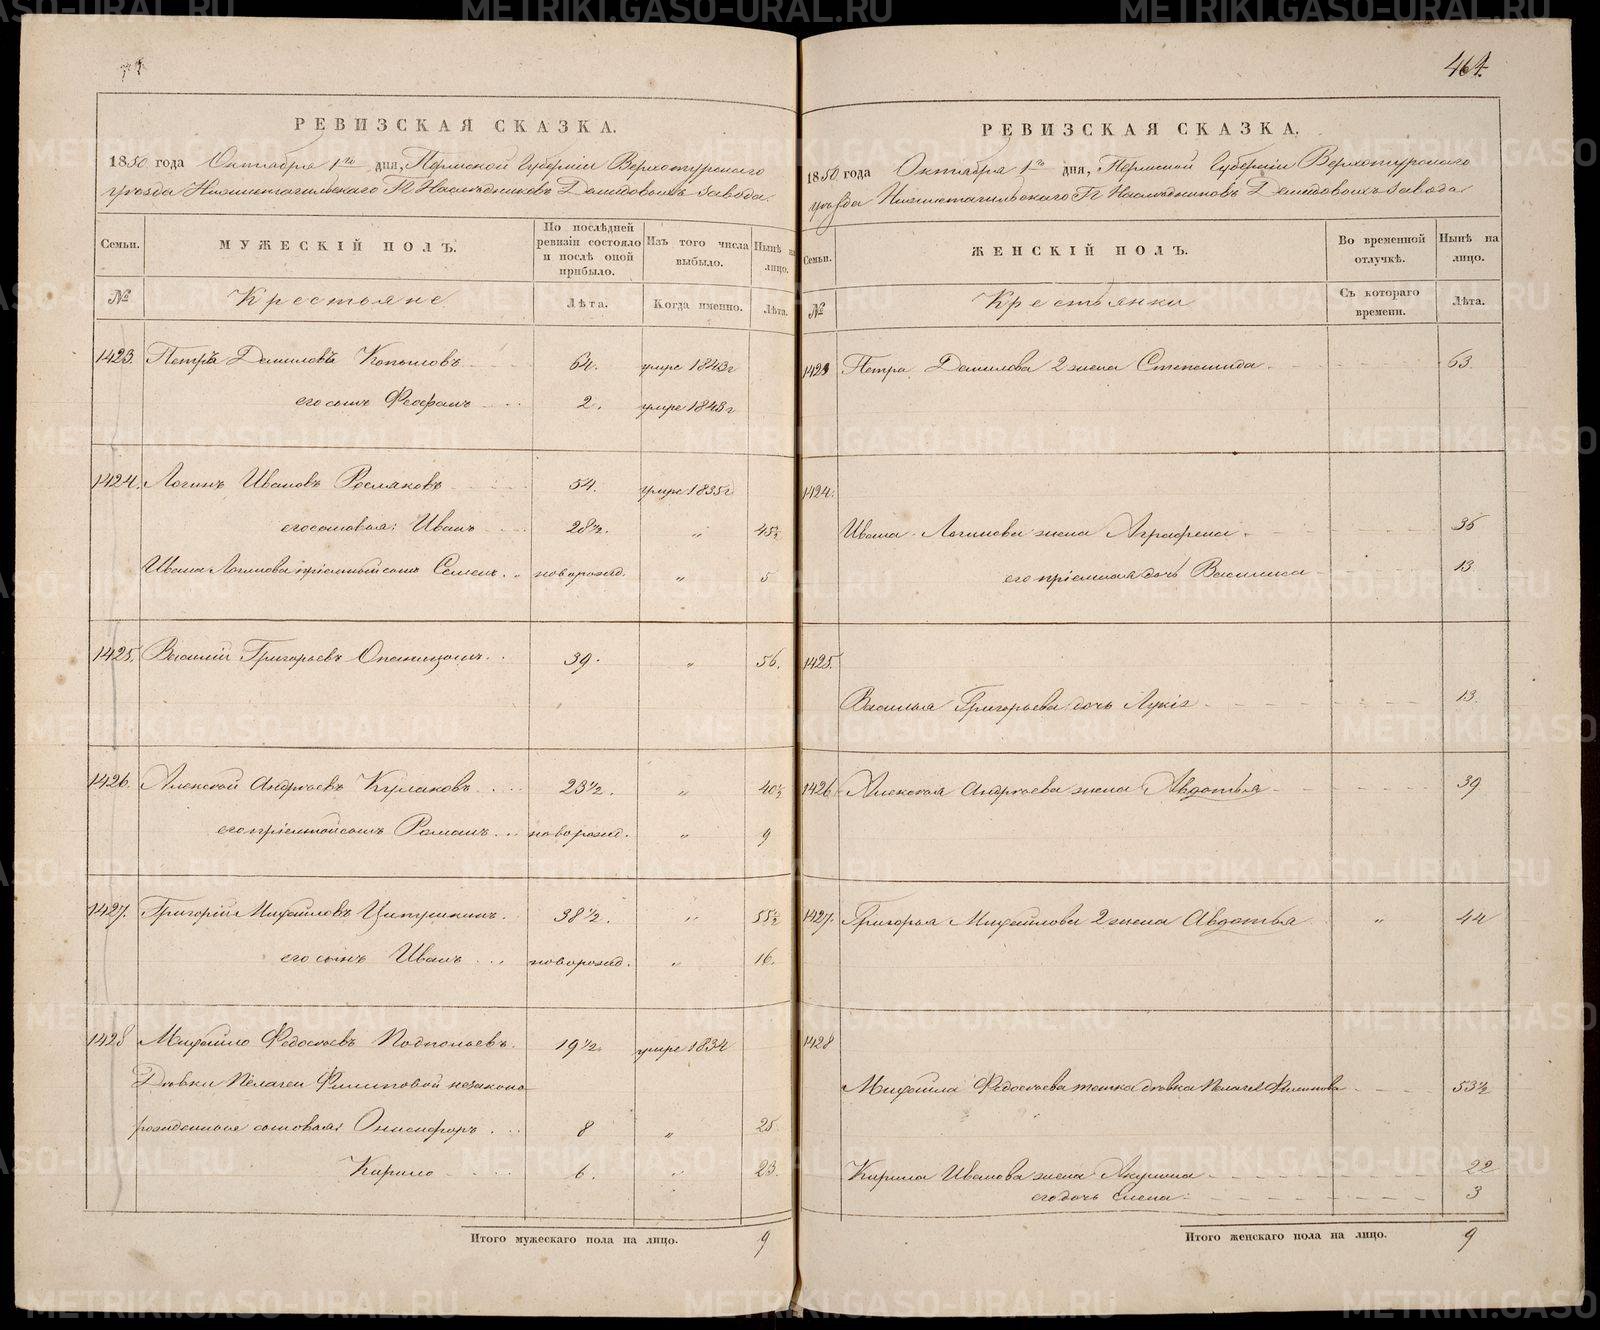 464.
РЕВИЗСКАЯ СКАЗКА.
1850 года Октября 1го дня, Пермской Губерніи Верхотурскаго
уѣзда Нижнетагильскаго Гг Наслѣдниковъ Демидовыхъ завода.
Семьи.
МУЖЕСКІЙ ПОЛЪ.
По послѣдней ревизіи состояло и послѣ оной прибыло.
Изъ того числа выбыло.
Нынѣ на лицо.
№
Крестьяне
Лѣта.
Когда именно.
Лѣта.
1423. Петръ Даниловъ Копыловъ 64. умре 1843г
его сынъ Феофанъ 2. умре 1843г
1424. Логинъ Ивановъ Росляковъ 54. умре 1835г
его сыновья: Иванъ 28½. „ 45½
Ивана Логинова пріемный сынъ Семенъ новорожд. „ 5
1425. Василій Григорьевъ 39. „ 56.
1426. Алексѣй Андрѣевъ Кулаковъ 23½. „ 40½
его пріемной сынъ Романъ новорожд. „ 9
1427. Григорій Михайловъ Ципушкинъ. 38½. „ 55½
его сынъ Иванъ новорожд. „ 16.
1428 Михайло Федосѣевъ 19½. умре 1834
Дѣвки Пелагеи Филиповой незаконо
рожденные сыновья: Онисифоръ 8 „ 25
Кирило 6. „ 23.
Итого мужескаго пола на лицо. 9
РЕВИЗСКАЯ СКАЗКА.
1850 года Октября 1го дня, Пермской Губерніи Верхотурскаго
уѣзда Нижнетагильскаго Гг Наслѣдниковъ Демидовыхъ завода.
Семьи.
ЖЕНСКІЙ ПОЛЪ.
Во временной отлучкѣ.
Нынѣ на лицо.
№
Крестьянки
Съ котораго времени.
Лѣта.
1423 Петра Данилова 2 жена Степанида 63.
1424.
Ивана Логинова жена Аграфена 35
его пріемная дочь Василиса 13
1425.
Василья Григорьева дочь Лукія 13.
1426 Алексѣя Андрѣева жена Авдотья 39
1427. Григорья Михайлова 2 жена Авдотья „ 44
1428
Михайла Федосѣева тетка дѣвка Пелагея Филипова 53½
Кирила Иванова жена Акулина 22
его дочь Елена 3
Итого женскаго пола на лицо. 9
METRIKI.GASO-URAL.RU